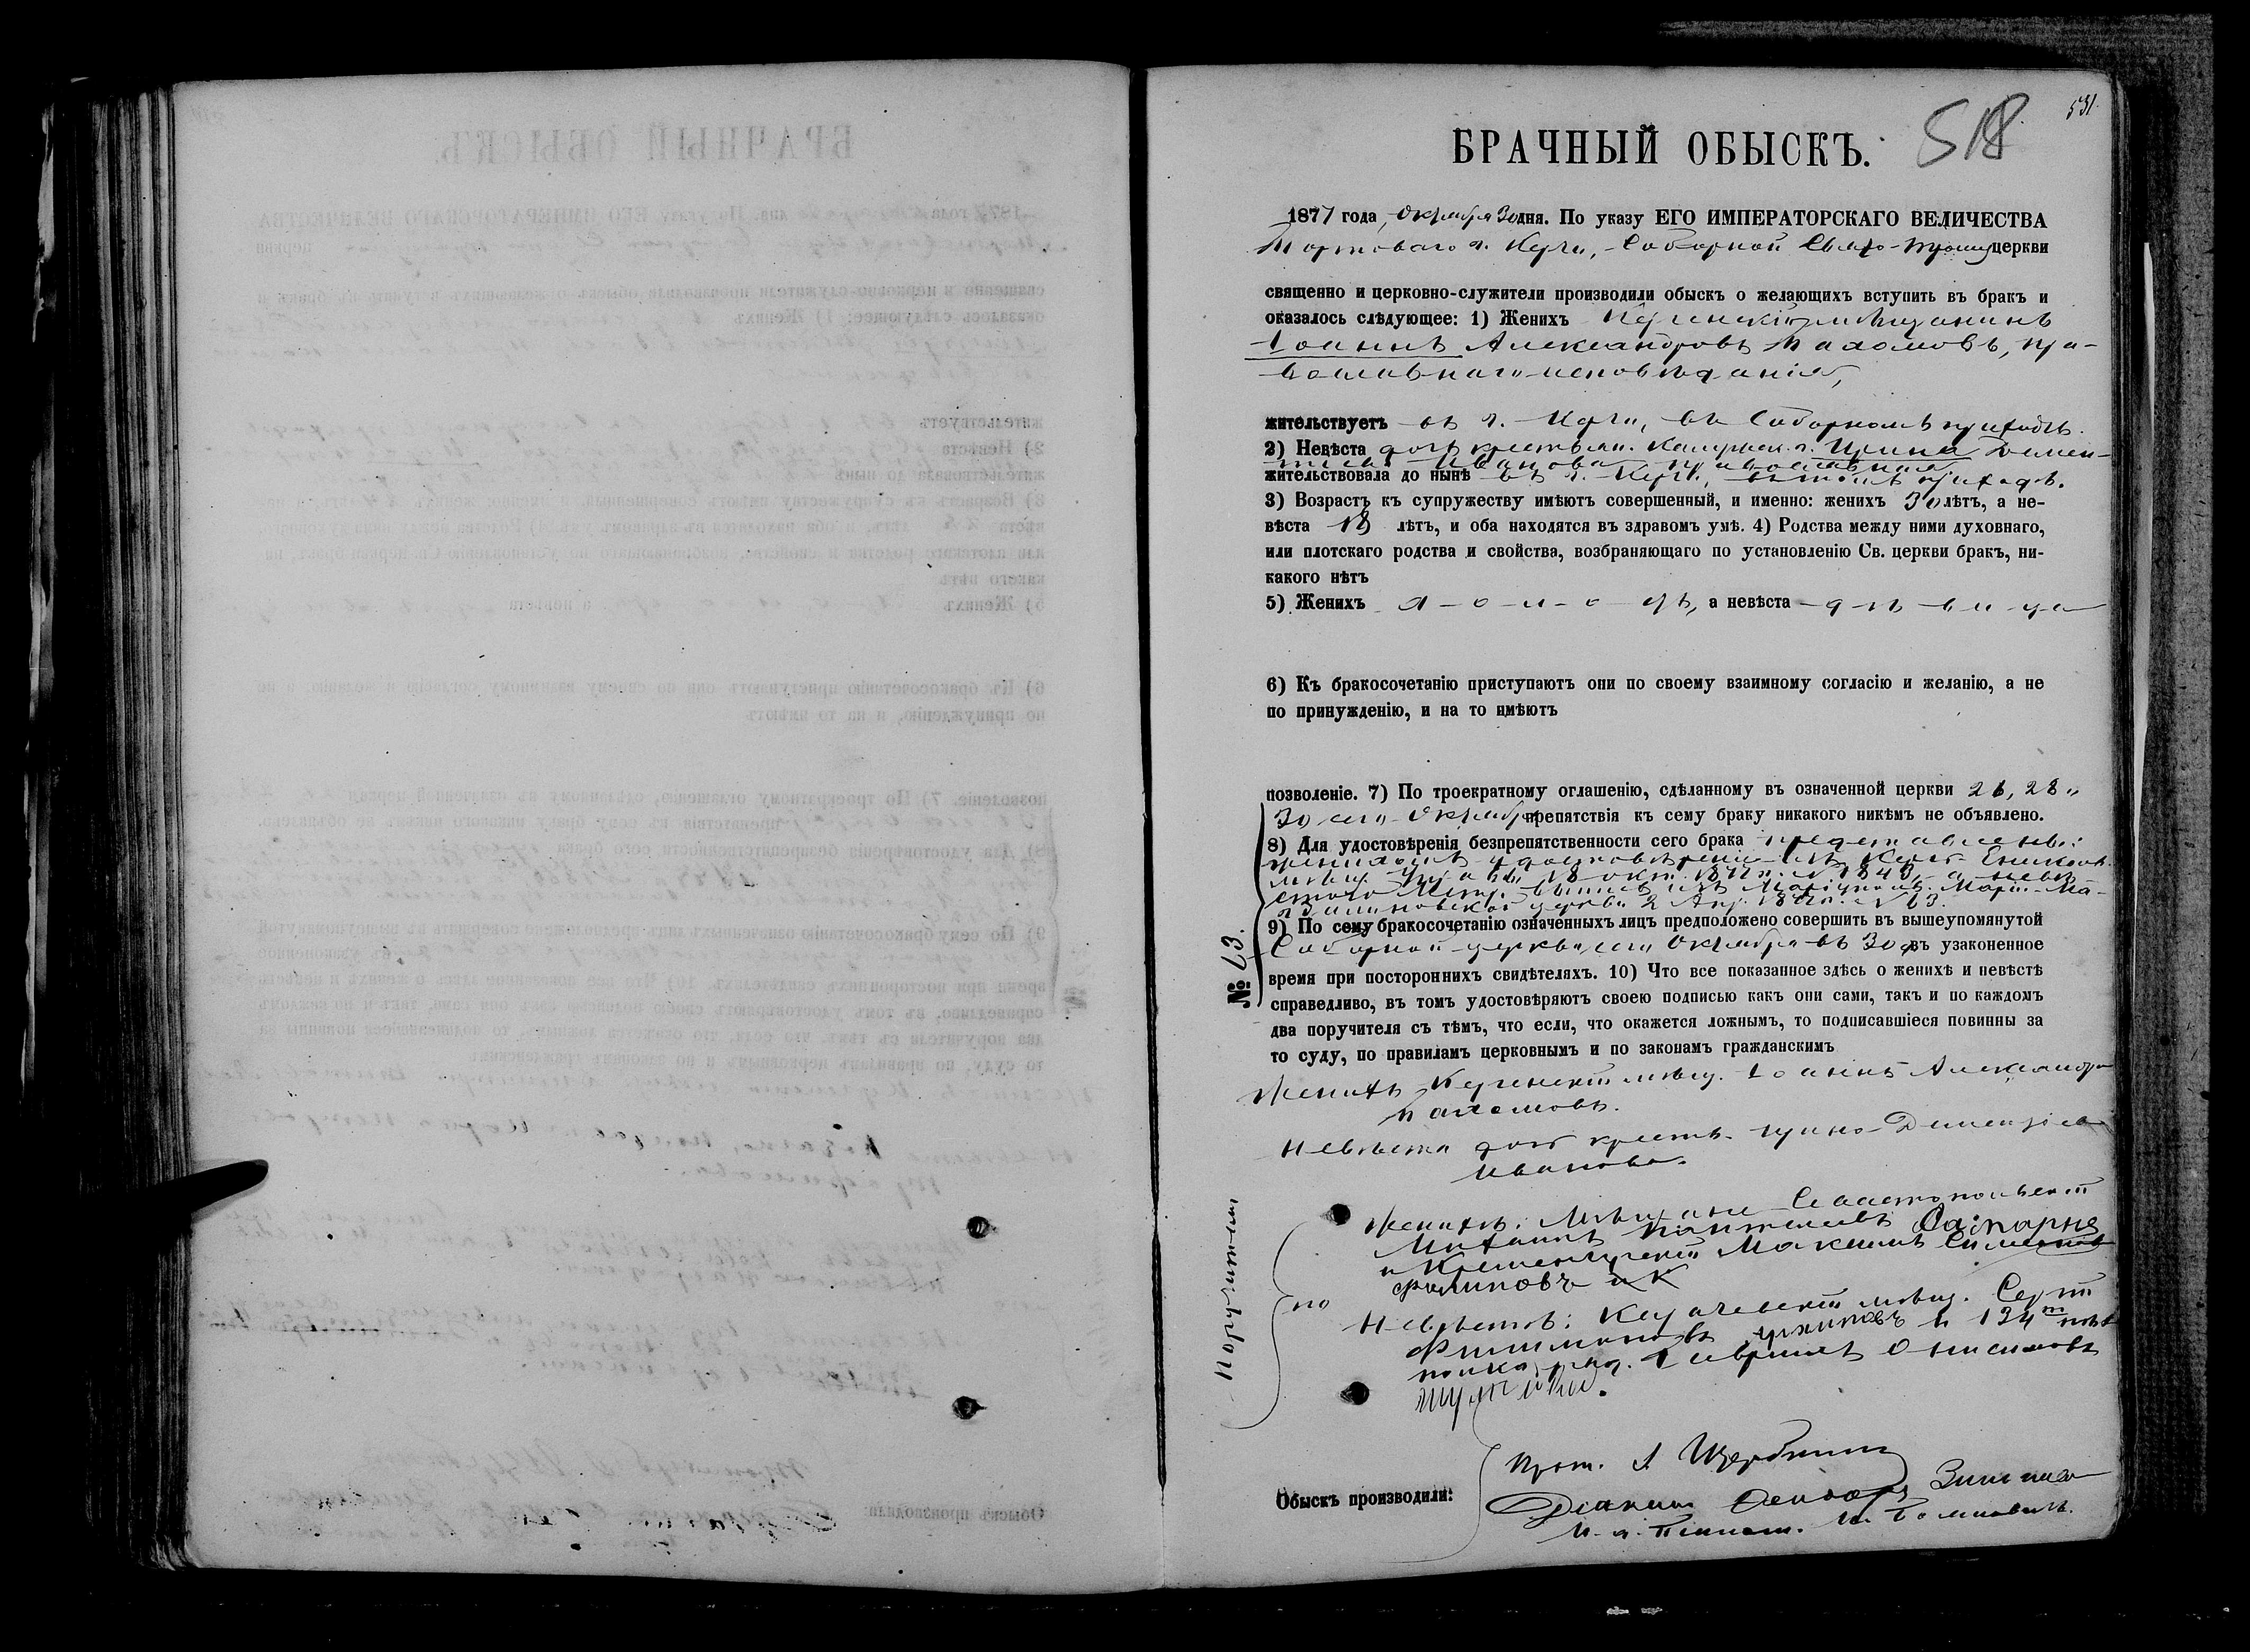 531
БРАЧНЫЙ ОБЫСКЪ. 518
1877 года, Октября 30 дня. По указу ЕГО ИМПЕРАТОРСКАГО ВЕЛИЧЕСТВА
Портоваго г. Керчи, Соборной Свято-Троицк церкви
священно и церковно-служители производили обыскъ о желающихъ вступить въ бракъ и
оказалось слѣдующее: 1) Женихъ Керченскій мѣщанинъ
Іоаннъ Александровъ Пахомовъ, пра-
вославнаго исповѣданія,
жительствуетъ въ г. Керчи, въ Соборномъ приходѣ.
2) Невѣста дочь крестьян. Калужск. г. Ирина Демен-
тьева Иванова, православная
жительствовала до нынѣ въ г. Керчи, въ томъ приходѣ.
3) Возрастъ къ супружеству имѣютъ совершенный, и именно: женихъ 30 лѣтъ, а не-
вѣста 18 лѣтъ, и оба находятся въ здравомъ умѣ. 4) Родства между ними духовнаго,
или плотскаго родства и свойства, возбраняющаго по установленію Св. церкви бракъ, ни-
какого нѣтъ
5) Женихъ х-о-л-о-стъ, а невѣста дѣвица
6) Къ бракосочетанію приступаютъ они по своему взаимному согласію и желанію, а не
по принужденію, и на то имѣютъ
позволеніе. 7) По троекратному оглашенію, сдѣланному въ означенной церкви 26, 28 и
30 сего Октября препятствія къ сему браку никакого никѣмъ не объявлено.
8) Для удостовѣренія безпрепятственности сего брака представлены:
женихомъ удостовѣреніе изъ Керчь-Еникол.
мѣщ. управы 18 окт. 1877 г. № 1843, а невѣ-
стою Метр. выпись изъ Маріупол. Маріи-Ма-
гдалиновской церкви 2 Апр. 1877 г. № 63.
9) По сему бракосочетанію означенныхъ лицъ предположено совершить въ вышеупомянутой
Соборной церкви, сего Октября въ 30 д. въ узаконенное
время при постороннихъ свидѣтеляхъ. 10) Что все показанное здѣсь о женихѣ и невѣстѣ
справедливо, въ томъ удостовѣряютъ своею подписью какъ они сами, такъ и по каждомъ
два поручителя съ тѣмъ, что если, что окажется ложнымъ, то подписавшіеся повинны за
то суду, по правиламъ церковнымъ и по законамъ гражданскимъ
№ 63.
Женихъ Керченскій мѣщ. Іоаннъ Александров
Пахомовъ.
Невѣста дочь крестъ. Ирина Дементіева
Иванова.
Поручители
по
Женихѣ: Мѣщане Севастопольскій
Михаилъ
и Кременчугскій Максимъ
Филиповъ
Невѣстѣ: мѣщ. Сергій
Филимоновъ Архиповъ и 134го пѣх.
полка ряд. Гавріилъ Онисимовъ
Обыскъ производили:
Прот. А Щербинин
Діаконъ Ѳеодоръ
И. д. Псалом.